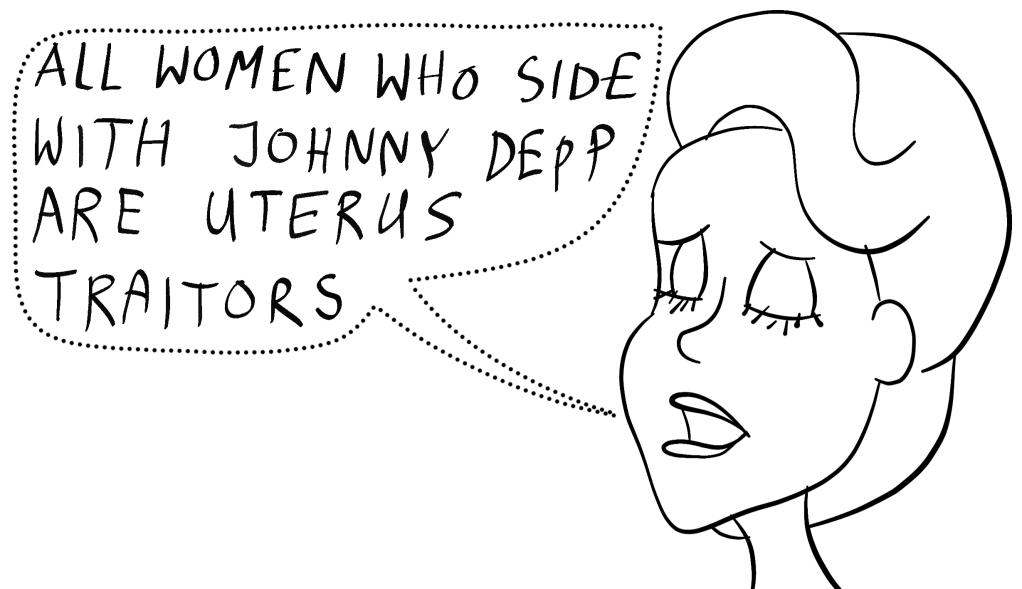 ALL WOMEN WHO SIDE
WITH JOHNNY DEPP
ARE UTERUS
TRAITORS